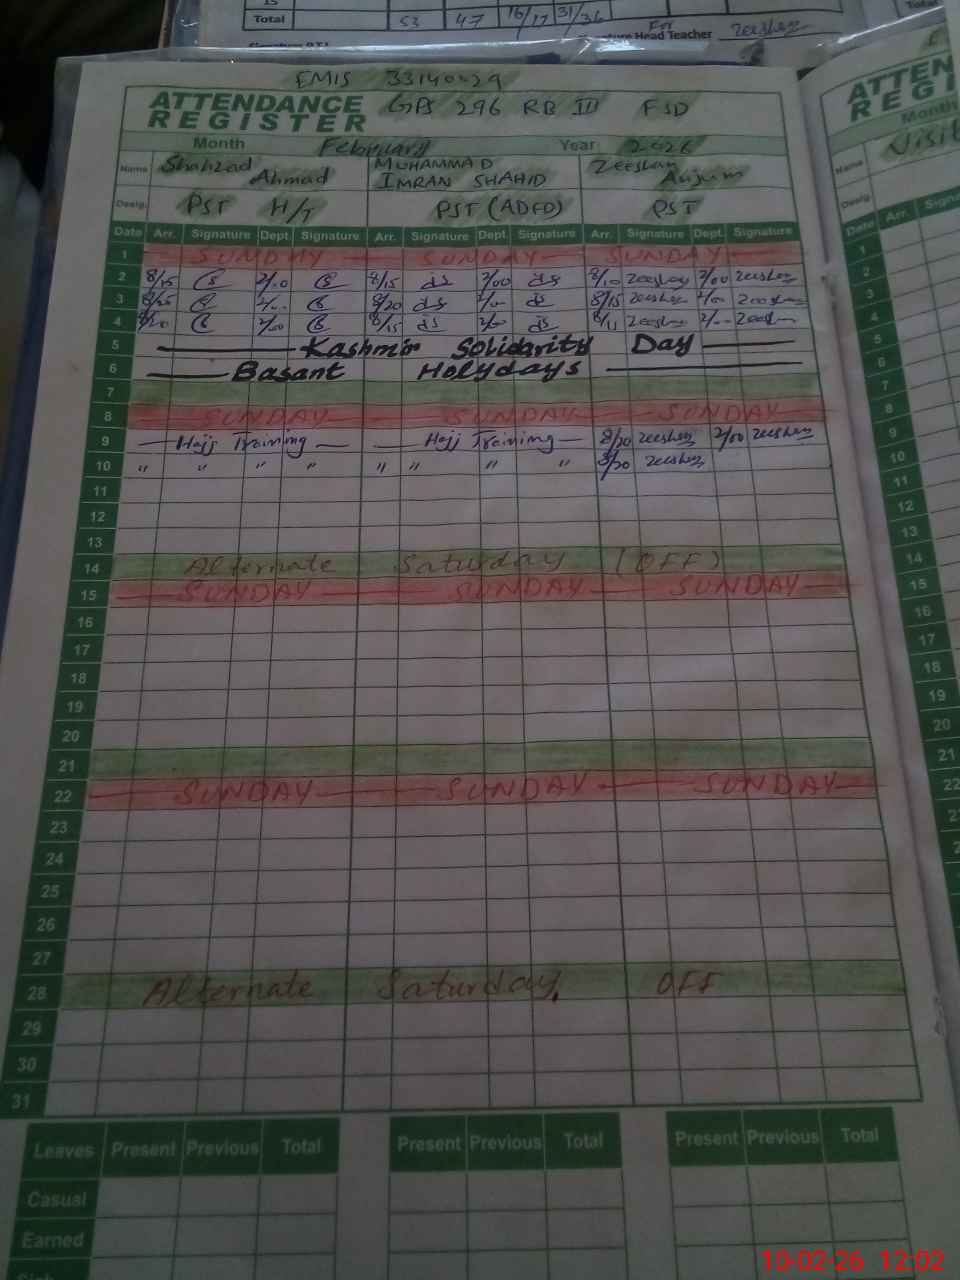 Total 53 47 16/17 31/36
For
Signature Head Teacher Zeeshan
Total
EMIS 33140029
ATTENDANCE REGISTER GPS 296 RB III FSD
Month February Year 2026
Name Shahzad Ahmad MUHAMMAD IMRAN SHAHID Zeeshan Anjum
Desig. PST H/T PST (ADFD) PST
Date Arr. Signature Dept. Signature Arr. Signature Dept. Signature Arr. Signature Dept. Signature
1 SUNDAY SUNDAY SUNDAY
2 8/15 2/00 8/15 2/00 8/10 Zeeshan 2/00 Zeeshan
3 8/25 2/00 8/20 2/00 8/15 Zeeshan 2/00 Zeeshan
4 8/20 2/00 8/15 2/00 8/11 Zeeshan 2/00 Zeeshan
5 Kashmir Solidarity Day
6 Basant Holydays
7
8 SUNDAY SUNDAY SUNDAY
9 Hajj Training Hajj Training 8/20 Zeeshan 2/00 Zeeshan
10 " " " " " " " " 8/20 Zeeshan
11
12
13
14 Alternate Saturday (OFF)
15 SUNDAY SUNDAY SUNDAY
16
17
18
19
20
21
22 SUNDAY SUNDAY SUNDAY
23
24
25
26
27
28 Alternate Saturday. OFF
29
30
31
Leaves Present Previous Total Present Previous Total Present Previous Total
Casual
Earned
ATTEN
REGI
Month
Name Visit
Desig.
Date Arr. Signa
1
2
3
4
5
6
7
8
9
10
11
12
13
14
15
16
17
18
19
20
21
22
10-02-26 12:02